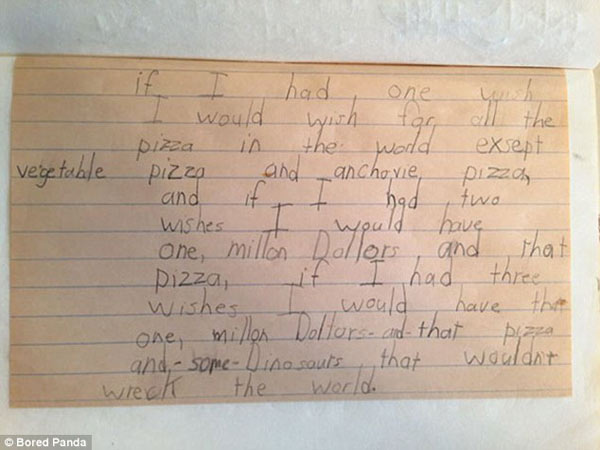 if I had one wish
I would wish for all the
pizza in the world exsept
vegetable pizza and anchovie pizza,
and if I had two
wishes I would have
one, millon Dollors and that
pizza, if I had three
wishes I would have that
one, millon Dollors-and-that pizza
and,-some-Dinosaurs that wouldn't
wreck the world.
© Bored Panda